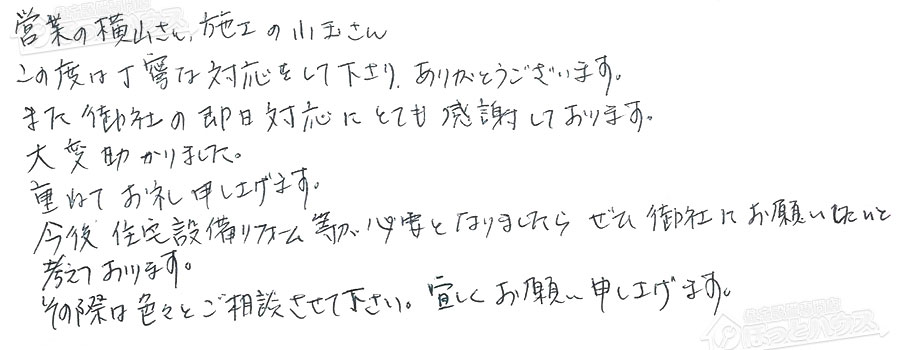 営業の横山さん、施工の小玉さん
この度は丁寧な対応をして下さり、ありがとうございます。
また御社の即日対応にとても感謝しております。
大変助かりました。
重ねてお礼申し上げます。
今後住宅設備リフォーム等が必要となりましたら ぜひ御社にお願いしたいと
考えております。
その際は色々とご相談させて下さい。宜しくお願い申し上げます。
住宅設備専門店
ほっとハウス